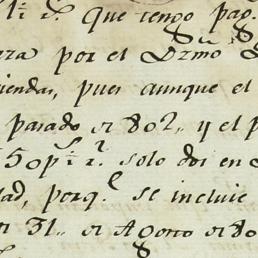 que tengo pag.
por el Dr̃mo D
iendas, pues aunque el
pasado de 802,, y el p
50 p.s r.s solo doi en
dad, porq.e se incluie
31,, de Agosto de 80